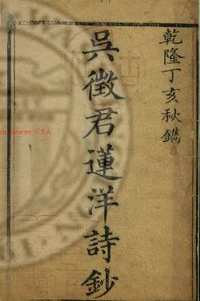 乾隆丁亥秋鐫
吳徵君蓮洋詩鈔